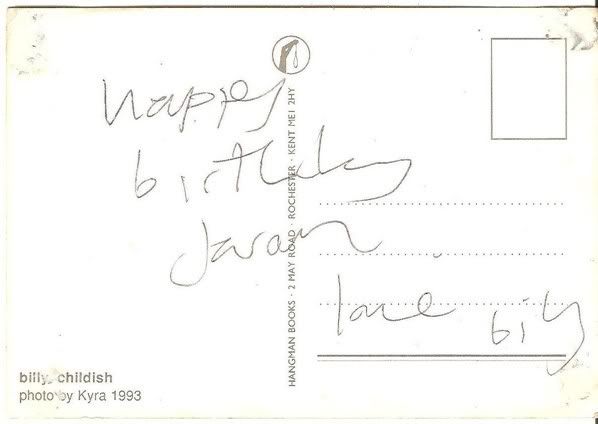 happy
birthday
love billy
HANGMAN BOOKS · 2 MAY ROAD · ROCHESTER · KENT ME1 2HY
billy childish
photo by Kyra 1993